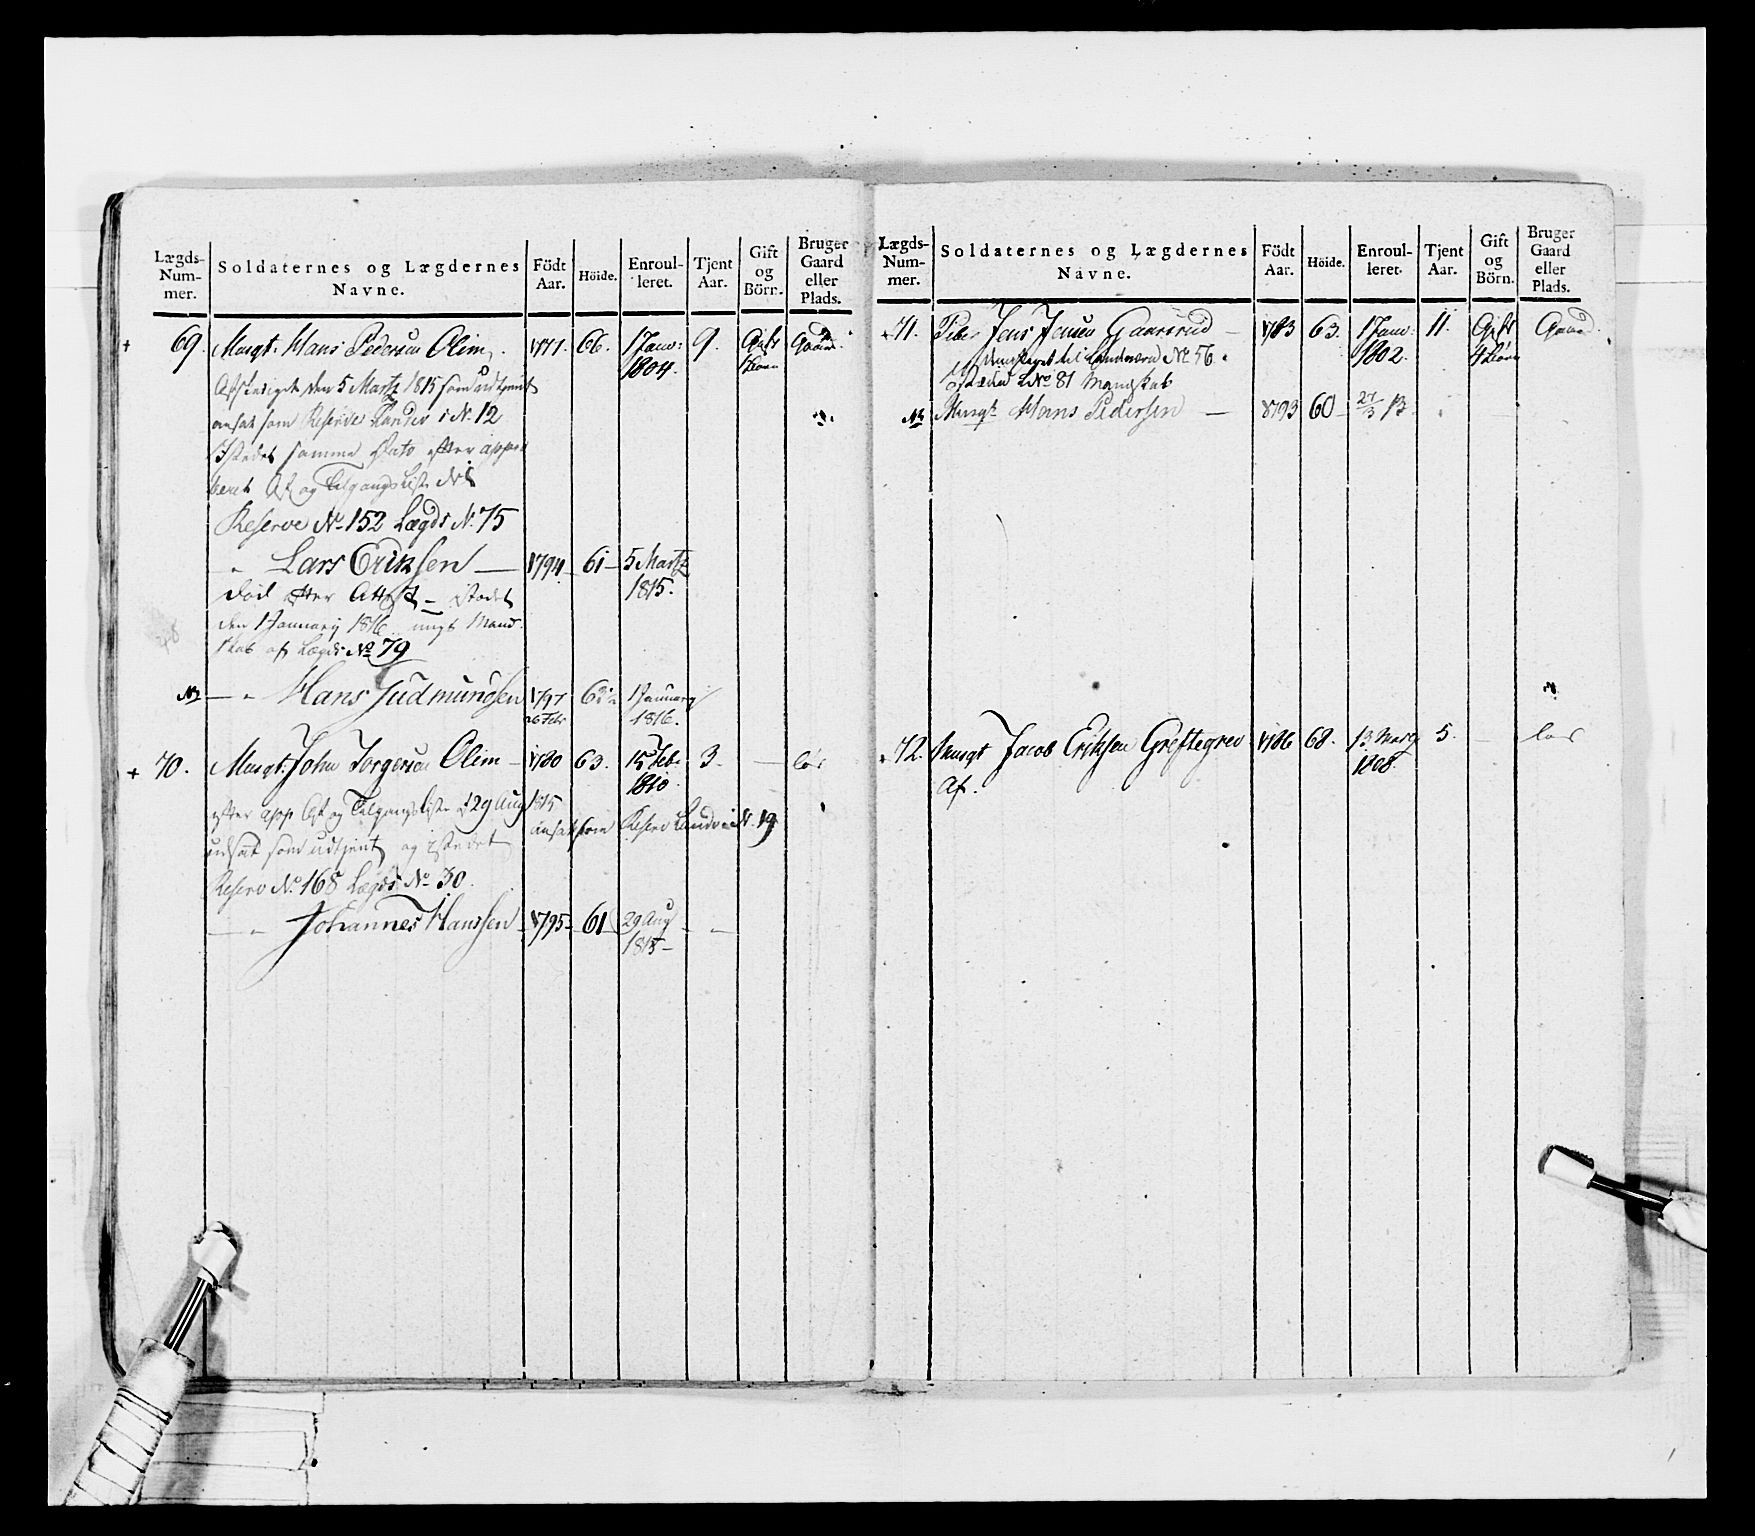 Lægds-Num-mer.
Soldaternes og Lægdernes Navne.
Födt Aar.
Höide.
Enroul-leret.
Tjent Aar.
Gift og Börn.
Bruger Gaard eller Plads.
69. Musqt: Hans Pedersen Olim. 1771. 66. 1 Janv: 1804. 9. Gift 1 Barn Gaard.
Afskediget den 5 Martz 1815 som udtjent
ansat som Reserve i No. 12
Istedet samme Dato efter appro
beret Af og Tilgangsliste No 1
Reserve No. 152 Lægds No. 75
" Lars Eriksen — 1794 61 — 5 Martz 1815.
död efter Attest — istedet
den 1 January 1816 ungt Mand
skab af Lægds No 79
No — " Hans Gudmundsen 1797 26 Febr 1 January 1816.
+ 70. Musqt: John Torgersen Olim — 1780 63. 15 Feb. 1810 3. — lös
efter app Af og Tilgangsliste d 29 Aug 1815
ansat som Reserv Landværn No. 19
udsat som udtjent og istedet
Reserv No. 168 Lægds No. 30.
— " Johannes Hanssen 1795 — 61 29 Aug 1815 —
Lægds-Num-mer.
Soldaternes og Lægdernes Navne.
Födt Aar.
Höide.
Enroul-leret.
Tjent Aar.
Gift og Börn.
Bruger Gaard eller Plads.
71. Jens Jensen Gaarsrud — 1783 63. 1 Janv: 1802. 11. Gift 4 Börn Gaard.
til Landværn No 56.
No 81 Mandskab
No Musqt Hans Pedersen — 1793 60 — 27/3 13
72. Musqt Jacob Eriksen Greftegrev 1786 68. 13 Marz 1808. 5. — lös
Af.